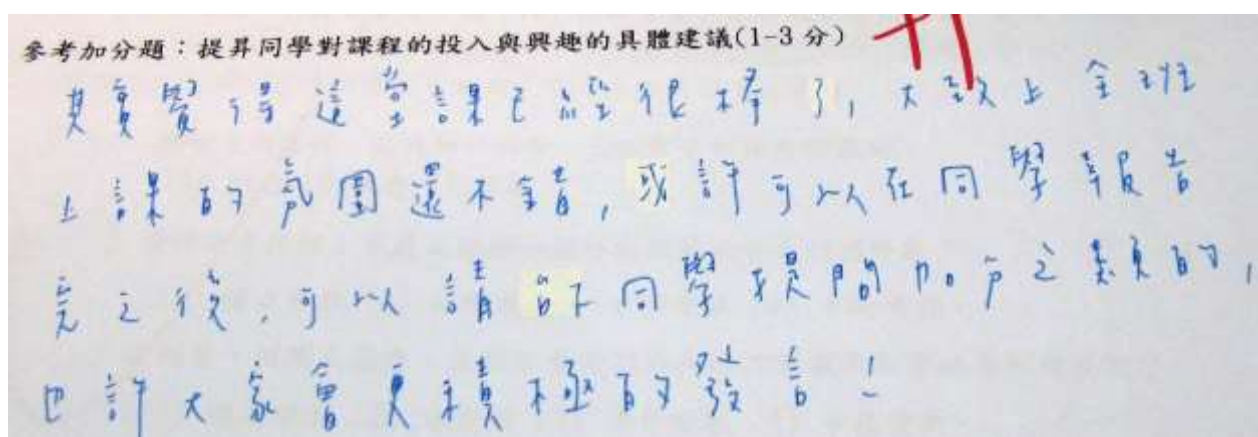 參考加分題：提昇同學對課程的投入與興趣的具體建議(1-3 分)
其實覺得這堂課已經很棒了，大致上全班
上課的氛圍還不錯，或許可以在同學報告
完之後，可以請台下同學提問加分之類的，
也許大家會更積極的發言！